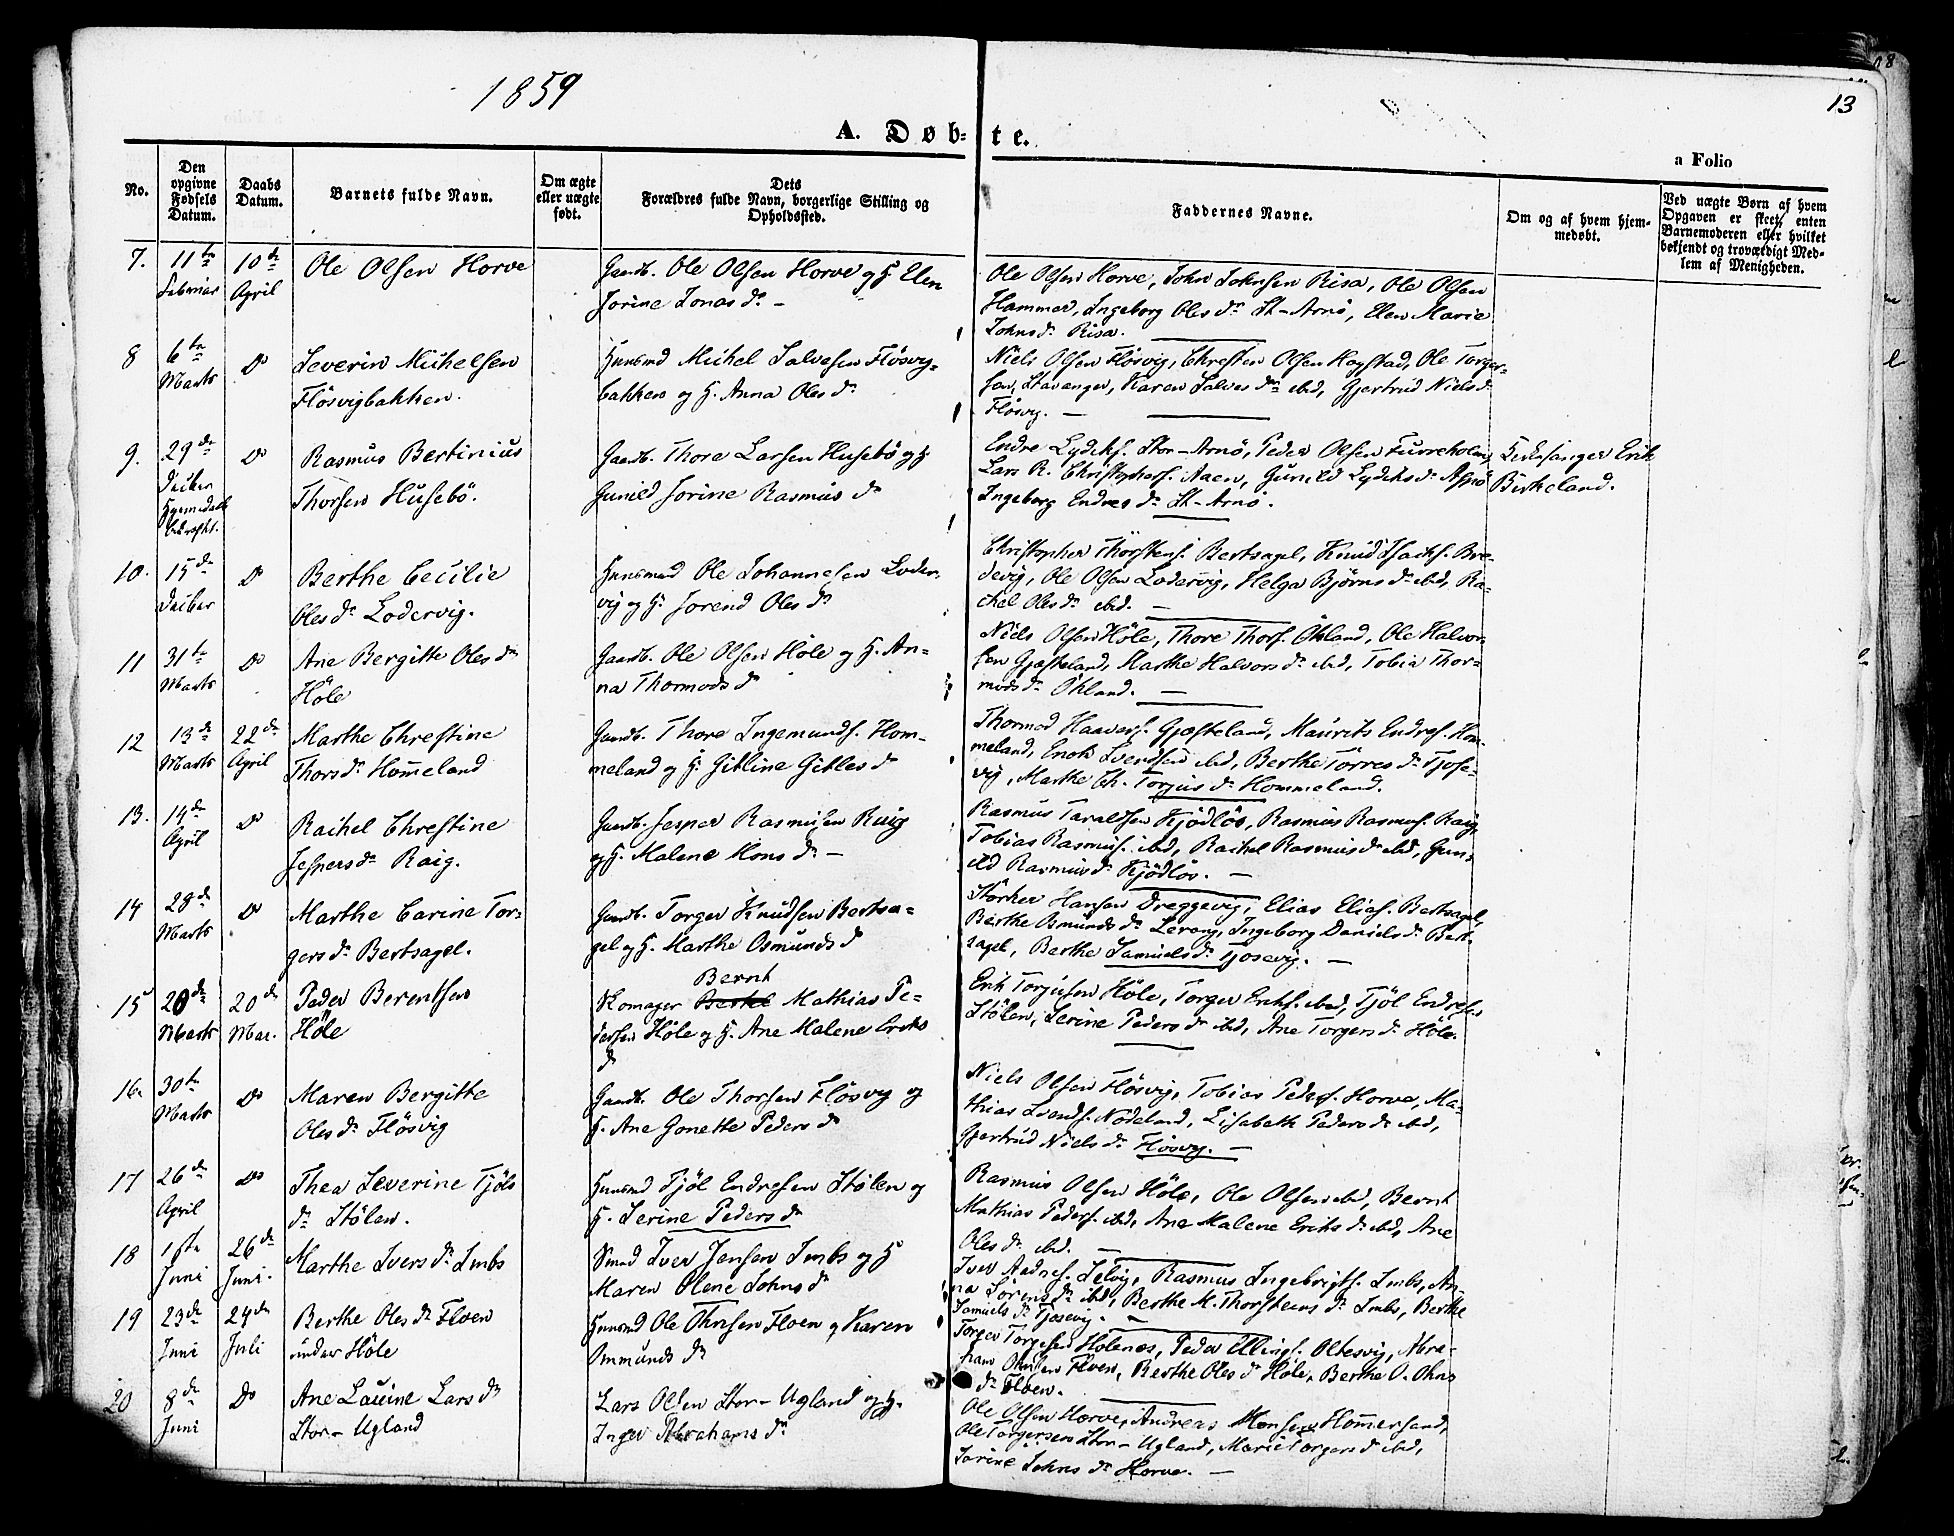 1859
13
A. Døb= te.
a Folio
No.
Den opgivne Fødsels Datum.
Daabs Datum.
Barnets fulde Navn.
Om ægte eller uægte født.
Dets Forældres fulde Navn, borgerlige Stilling og Opholdssted.
Faddernes Navne.
Om og af hvem hjemmedøbt.
Ved uægte Børn af hvem Opgaven er skeet, enten Barnemoderen eller hvilket bekjendt og troværdigt Medlem af Menigheden.
7. 11te Februar 10de April
Ole Olsen Horve
Gaardb. Ole Olsen Horve og H. Elen
Jorine Jonas dr. –
Ole Olsen Horve, John Johnsen Risa, Ole Olsen
Hammer, Ingeborg Oles dr. St-Arnö, Elen Marie
Johns dr. Risa.
8 6te Marts Do
Severin Michelsen
Flösvigbakken.
Huusmd Michel Salvesen Flösvig-
bakken og H. Anna Oles dr
Niels Olsen Flösvig, Chresten Olsen Hogstad, Ole Torger-
sen, Stavanger, Karen Salves dr ibid, Gjertrud Niels dr
Flösvig. –
9. 29de Decber Hjemmedøbt Do
Rasmus Bertinius
Thorsen Husebö.
Gaardb. Thore Larsen Husebö og H
Gunild Jorine Rasmus dr
Endre Lydeks. Stor-Arnö, Peder Olsen Furreholm,
Lars R. Christophers. Aaen, Gunild Lydeks dr Aspö
Ingeborg Endres dr St-Arnö.
Kirkesanger Erik
Birkeland.
10. 15de Decber Do
Berthe Cecilie
Oles dr Lodervig.
Huusmd Ole Johannesen Loder-
vig og H. Jorend Oles dr
Christopher Thorstens. Bertsagel, Knud Isachs. Bre-
devig, Ole Olsen Lodervig, Helga Bjørns dr ibid, Ra-
chel Oles dr ibid. –
11 31te Marts Do
Ane Bergitte Oles dr
Höle
Gaardb. Ole Olsen Höle og H. An-
na Thormods dr
Niels Olsen Höle, Thore Thors. Ökland, Ole Halvor-
sen Gjesteland, Marthe Halvors dr ibid, Tobia Thor-
mods dr Ökland. –
12 13de Marts 22de April
Marthe Chrestine
Thors dr Hom̅eland
Gaardb. Thore Ingemunds. Hom-
meland og H. Gitline Gitles dr
Thormod Haavars. Gjesteland, Maurits Endres. Hom-
meland, Enok Svendsen ibid, Berthe Törres dr Tjose-
vig, Marthe Ch. Torjus dr Hommeland.
13. 14de April Do
Rachel Chrestine
Jespers dr Raig.
Gaardb. Jesper Rasmusen Raig
og H. Malene Mons dr –
Rasmus Taraldsen Kjödlös, Rasmus Rasmus. Raig,
Tobias Rasmus. ibid, Rachel Rasmus dr ibid, Gun-
ild Rasmus dr Kjödlös. –
14 28de Marts Do
Marthe Carine Tor-
gers dr Bertsagel.
Gaardb. Torger Knudsen Bertsa-
gel og H. Marthe Osmunds dr
Störker Hansen Dreggevig, Elias Elias. Bertsagel,
Berthe Osmunds dr Lerang, Ingeborg Daniels dr Bert-
sagel, Berthe Samuels dr Tjosevig. –
15 20de Marts 20de Mar.
Peder Berentsen
Höle
Bernt
Skomager Berthel Mathias Pe-
dersen Höle og H. Ane Malene Eriks
dr
Erik Torjusen Höle, Torger Eriks. ibid, Tjöl Endresen
Stölen, Serine Peders dr ibid, Ane Torgers dr Höle.
16. 30te Marts Do
Maren Bergitte
Oles dr Flösvig
Gaardb. Ole Thorsen Flösvig og
H. Ane Gonette Peders dr
Niels Olsen Flösvig, Tobias Peders. Horve, Ma-
thias Svends. Nodeland, Lisabeth Peders dr ibid,
Gjertrud Niels dr Flösvig. –
17 26de April Do
Thea Severine Tjöls
dr Stölen.
Huusmd Tjöl Endresen Stölen og
H. Serine Peders dr
Rasmus Olsen Höle, Ole Olsen ibid, Bernt
Mathias Peders. ibid, Ane Malene Eriks dr ibid, Ane
Oles dr ibid. –
18 1ste Juni 26de Juni.
Marthe Ivers dr Imbs
Smed Iver Jensen Imbs og H
Maren Olene Johns dr
Iver Aadnes. Selvig, Rasmus Ingebrigts. Imbs, An-
na Sörens dr ibid, Berthe M. Thorsteins dr Imbs, Berthe
Samuels dr Tjosevig. –
19 23de Juni 24de Juli
Berthe Oles dr Floen
under Höle
Huusmd Ole Ohnsen Floen og Karen
Ommunds dr
Torger Torgersen Holenes, Peder Ellings. Oltesvig, Abra-
ham Ohnsen Floen, Berthe Oles dr Höle, Berthe O. Ohns
dr Floen.
20 8de Juni Do
Ane Laurine Lars dr
Stor-Ugland
Lars Olsen Stor-Ugland og H.
Inger Abrahams dr
Ole Olsen Horve, Andreas Monsen Hom̅ersand,
Ole Torgersen Stor-Ugland, Marie Torgers dr ibid,
Jorine Johns dr Horve. –